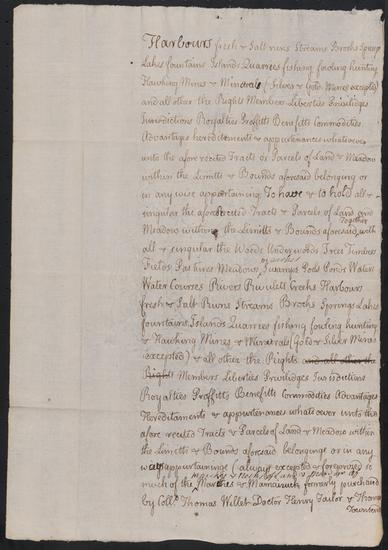 Harbours fresh & Salt rivers Streams Brooks Springs
Lakes fountains Islands Quarrees fishing fouling hunting
Hawking Mines & Minerals (Silver & Gold Mines excepted)
and all other the Rights Members Liberties Priviledges
Jurisdictions Royalties Proffitts Benefitts Commodities
Advantages hereditements & appurtenances whatsoever
unto the afore recited Tracts or Parcels of Land & Meadow
within the Limitts & Bounds aforesaid belonging or
in any wise appertaining To have & to hold all &
singular the afore recited Tracts & Parcels of Land and
Meadow within the Limitts & Bounds aforesaid together with
all & singular the Woods Underwoods Trees Timbers
Fields Pastures Meadows Swamps Pools Ponds Waters
Water Courses Rivers Rivulets Creeks Harbours
fresh & Salt Rivers Streams Brooks Springs Lakes
fountains Islands Quarrees fishing fouling hunting
& Hawking Mines & Minerals (Gold & Silver Mines
excepted) & all other the Rights and all other the
Rights Members Liberties Priviledges Jurisdictions
Royalties Proffitts Benefitts Commodities Advantages
Hereditaments & appurtenances whatsoever unto the
afore recited Tracts & Parcels of Land & Meadow within
the Limitts & Bounds aforesaid belonging or in any
ways appurtaining (always excepted & foreprized so
much of the Marches & Mamaruck formerly purchased
by Coll. Thomas Willet Doctor Henry Tailor & Thomas
Townsend